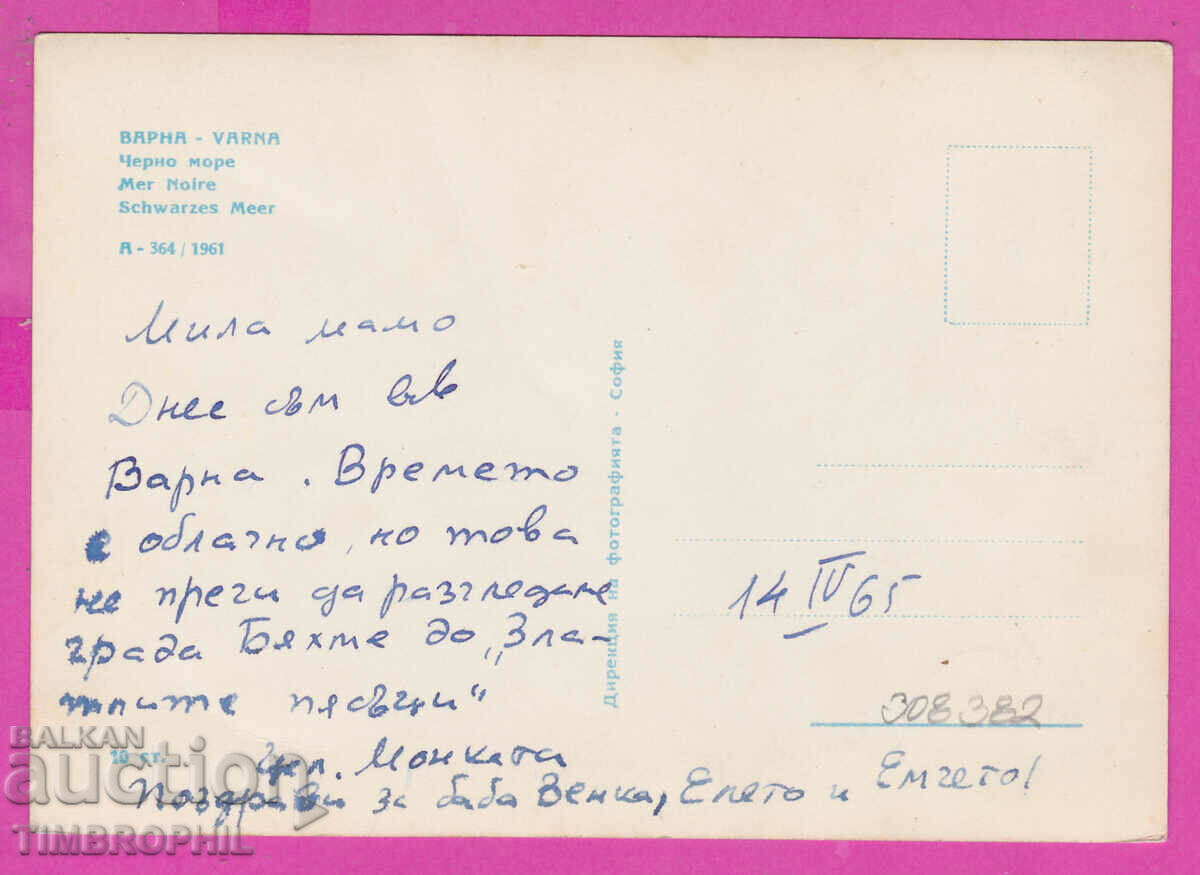 ВАРНА - VARNA
Черно море
Mer Noire
Schwarzes Meer
А - 364 / 1961
Мила мамо
Днес съм във
Варна. Времето
е облачно, но това
не пречи да разгледаме
града Бяхме до „Зла-
тните пясъци"
Цел. Монката
Поздрави за баба Венка, Елето и Емчето!
10 ст.
Дирекция на фотографията - София
14 IV 65
308382
BALKAN
auction
TIMBROPHIL